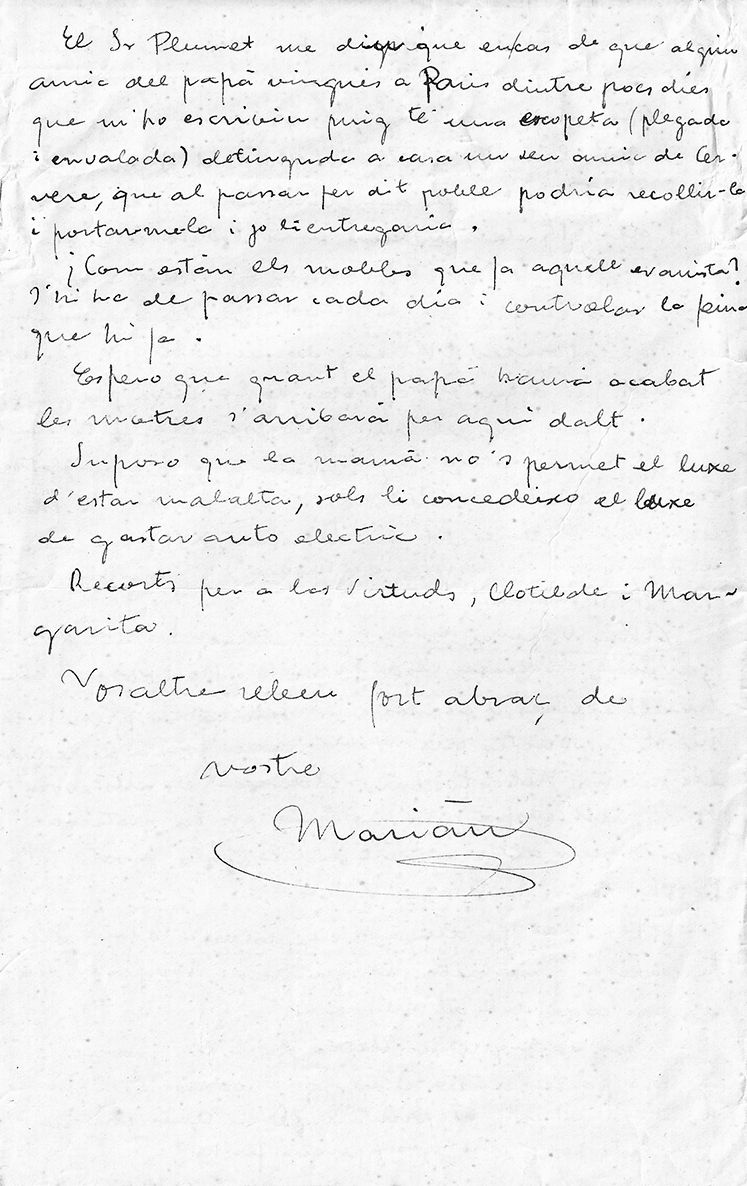 El Sr Plumet me digué que en cas de que algun
amic del papá vingués a Paris dintre pocs dies
que m'ho escriviu puig té una escopeta (plegada
i envalada) detinguda a casa un seu amic de Cer-
vere, que al passar per dit poble podría recollir-la
i portar-mela i jo li entregaria.
¡Com están els mobles que fa aquell evanista?
S'hi ha de passar cada día i controlar la feina
que hi fa.
Espero que quant el papá haurá acabat
les mostres s'arribará per aquí dalt.
Suposo que la mamá no's permet el luxe
d'estar malalta, sols li concedeixo el luxe
de gastar auto electric.
Recorts per a las Virtuds, Clotilde i Mar-
garita.
Vosaltre rebeu fort abraç de
vostre
Marián